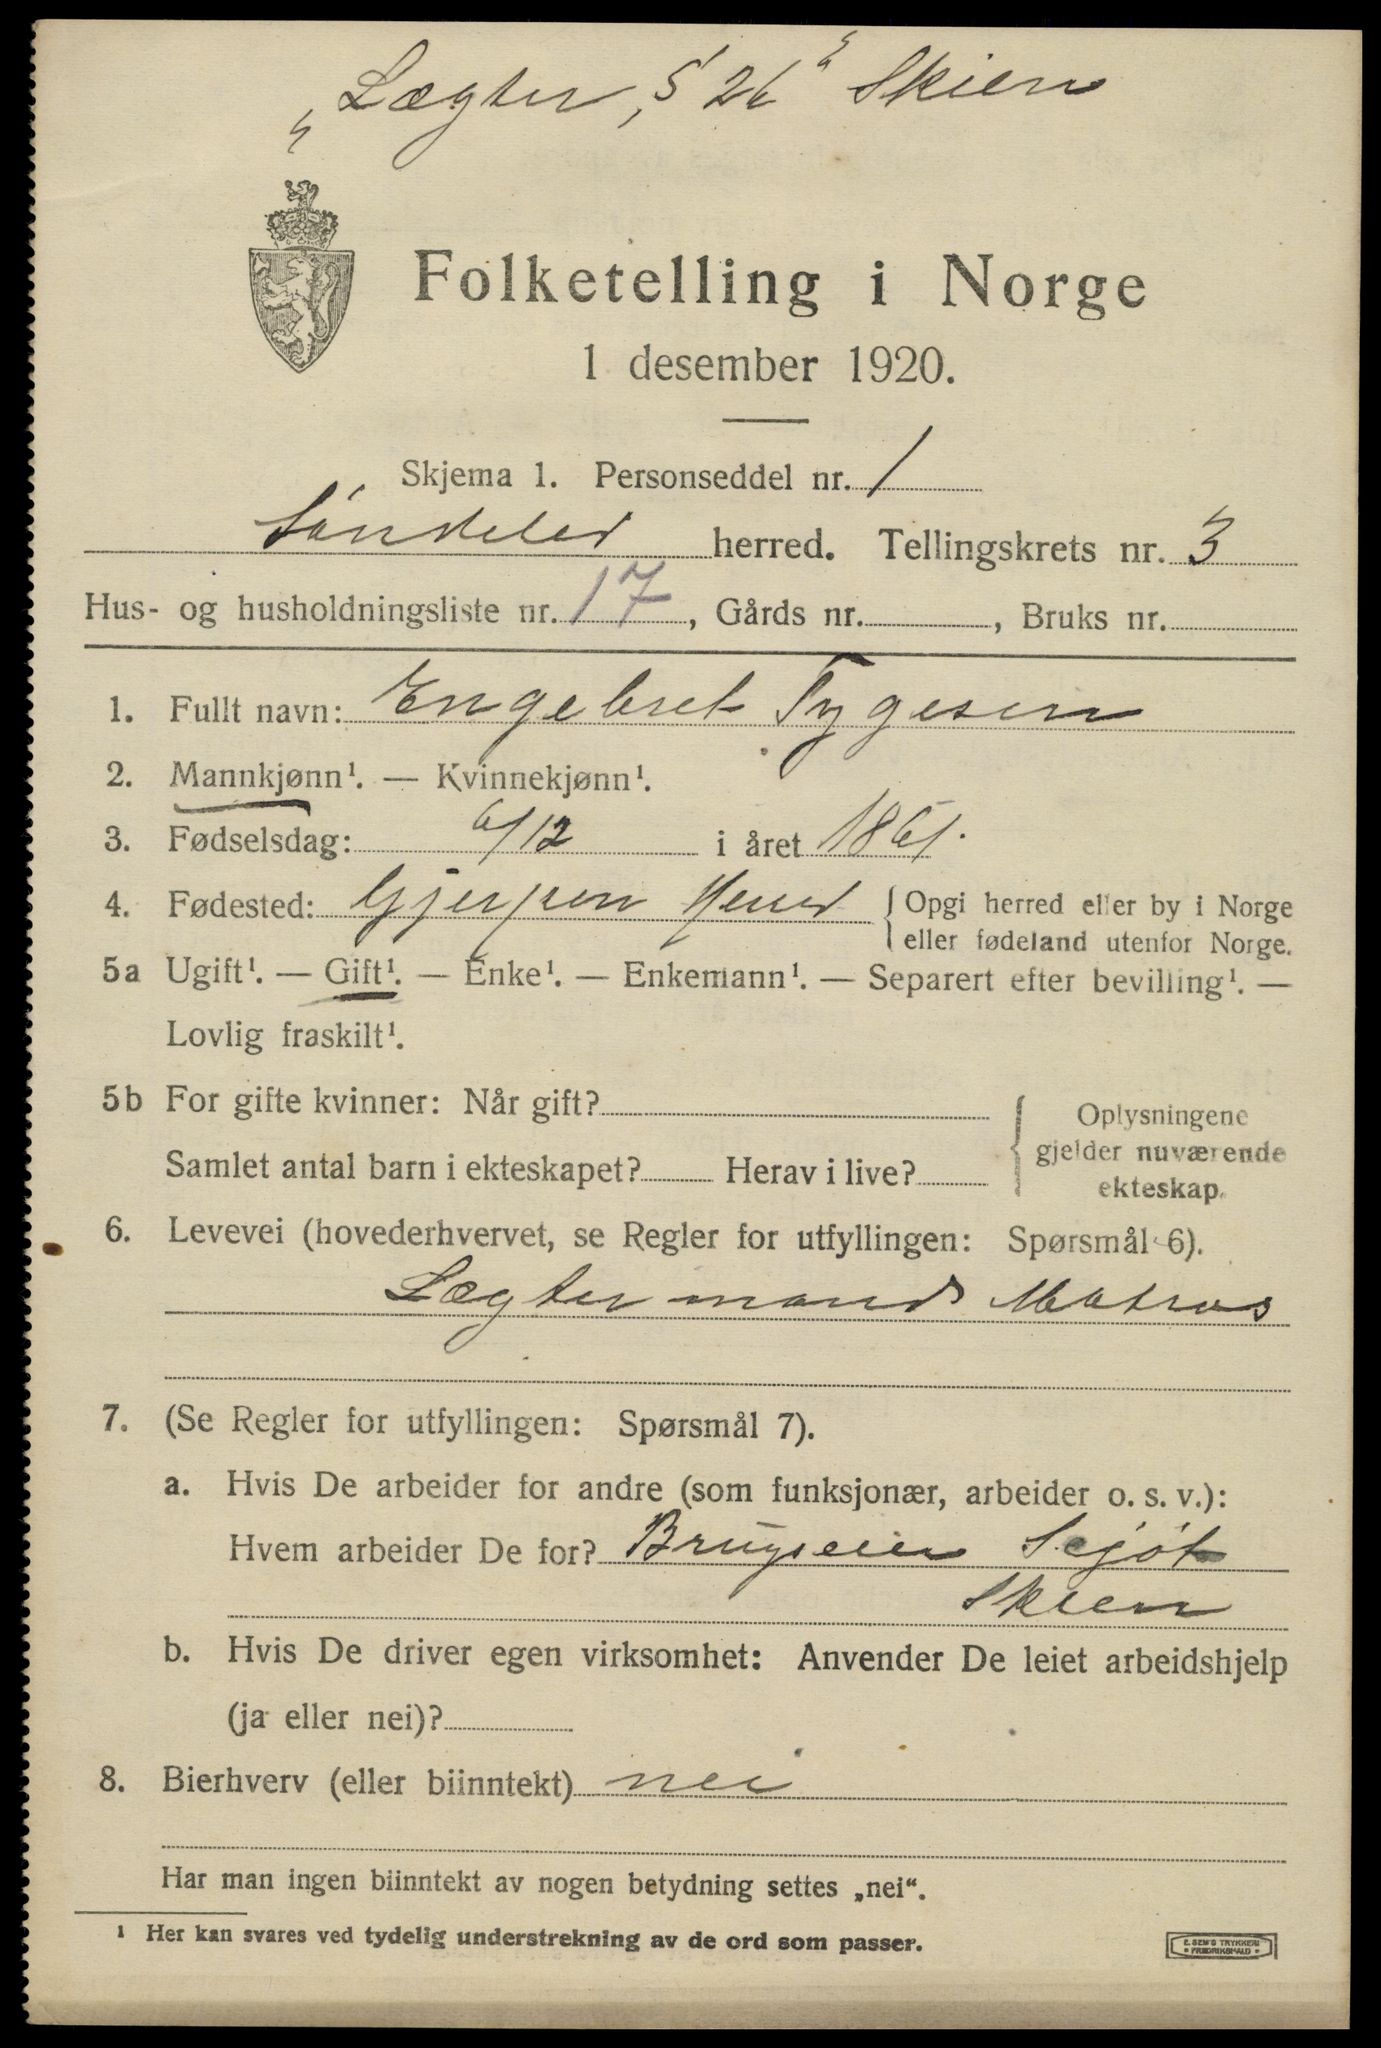 „Lægter, S 26" Skien
Folketelling i Norge
1 desember 1920.
Skjema 1. Personseddel nr. 1
Søndeled herred. Tellingskrets nr. 3
Hus- og husholdningsliste nr. 17, Gårds nr. , Bruks nr.
1. Fullt navn: Engebret Tygesen
2. Mannkjønn¹. — Kvinnekjønn¹.
3. Fødselsdag: 6/12 i året 1861.
4. Fødested: Gjerpen Herred { Opgi herred eller by i Norge
eller fødeland utenfor Norge.
5a Ugift¹. — Gift¹. — Enke¹. — Enkemann¹. — Separert efter bevilling¹. —
Lovlig fraskilt¹.
5b For gifte kvinner: Når gift? { Oplysningene
gjelder nuværende
Samlet antal barn i ekteskapet? Herav i live?
ekteskap.
6. Levevei (hovederhvervet, se Regler for utfyllingen: Spørsmål 6).
Lægtermand Matros
7. (Se Regler for utfyllingen: Spørsmål 7).
a. Hvis De arbeider for andre (som funksjonær, arbeider o. s. v.):
Hvem arbeider De for? Brugseier
Skien
b. Hvis De driver egen virksomhet: Anvender De leiet arbeidshjelp
(ja eller nei)?
8. Bierhverv (eller biinntekt) nei
Har man ingen biinntekt av nogen betydning settes „nei“.
¹ Her kan svares ved tydelig understrekning av de ord som passer.
E. SEM'S TRYKKERI
• FREDRIKSHALD •